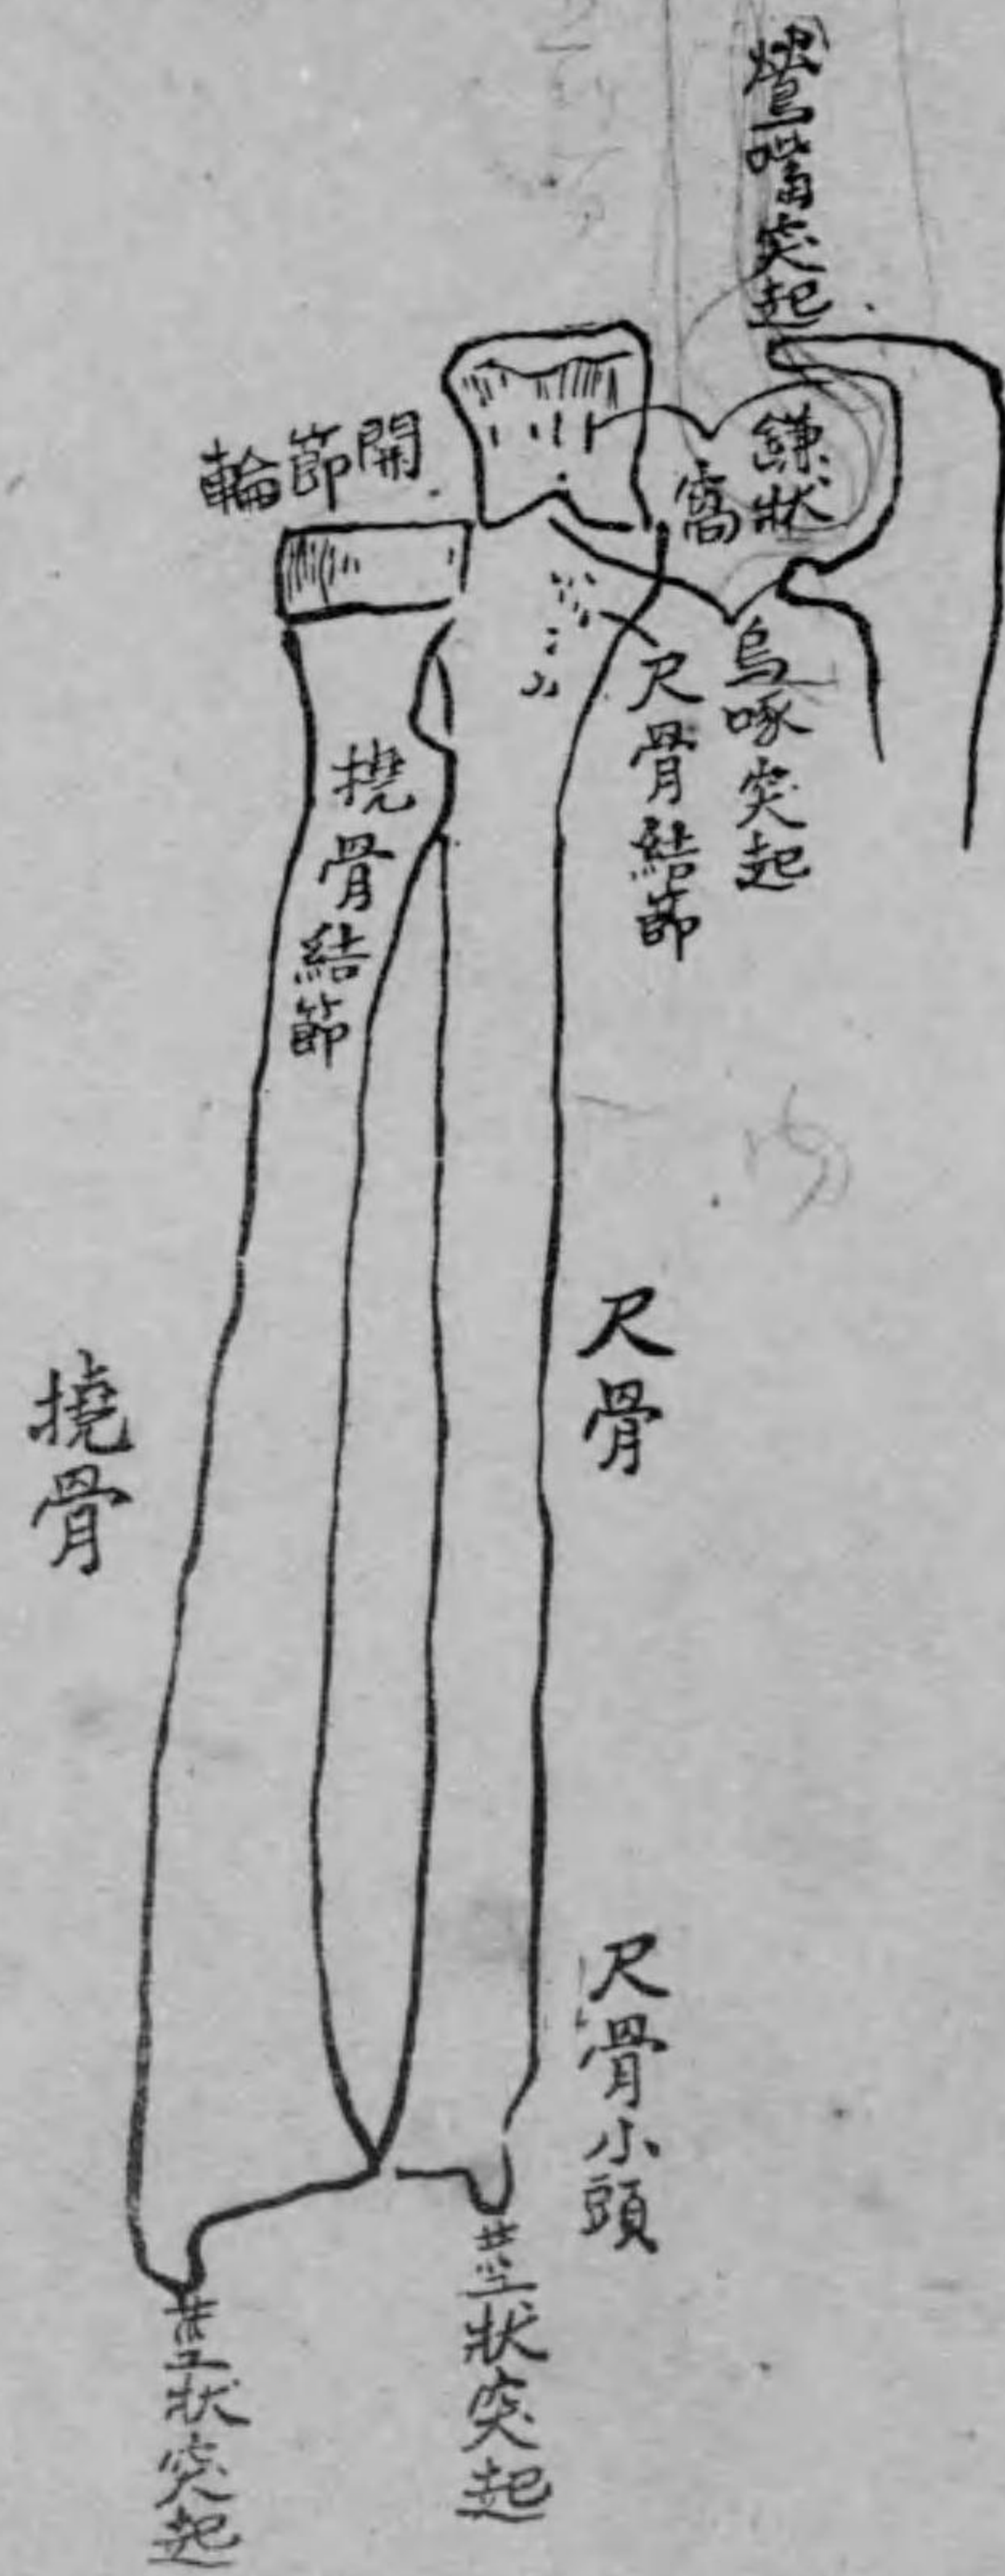 鶯嘴突起
鎌狀
窩
開節輪
烏啄突起
尺骨結節
撓骨結節
尺骨
撓骨
尺骨小頭
莖狀突起
莖狀突起